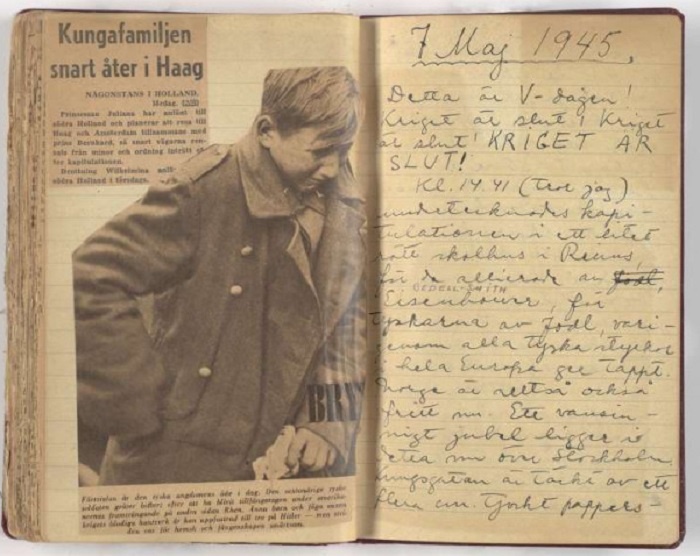 Kungafamiljen
snart åter i Haag
NÅGONSTANS I HOLLAND,
lördag.
Prinsessan Juliana har anlänt till
södra Holland och planerar att resa till
Haag och Amsterdam tillsammans med
prins Bernhard, så snart vägarna ren-
sats från minor och ordning inträtt
ter kapitulationen.
Drottning Wilhelmina
södra Holland i torsdags.
BRI
Förtvivlan är den tyska ungdomens öde i dag. Den
soldaten gråter bittert efter att ha blivit tillfångatagen under
arméns framträngande på andra sidan Rhen. Ännu barn och
krigets blodiga hantverk är han uppfostrad till tro på Hitler — men
den son lät honom och fångenskapen
7 Maj 1945.
Detta är V-dagen!
Kriget är slut! Kriget
är slut! KRIGET ÄR
SLUT!
Kl. 14.41 (tror jag)
undertecknades kapi-
tulationen i ett litet
rött skolhus i Reims,
för de allierade av Jodl,
BEDELL-SMITH
Eisenhower, för
tyskarna av Jodl, vari-
genom alla tyska styrkor
i hela Europa ger tappt.
Norge är alltså också
fritt nu. Ett vansin-
nigt jubel ligger i
detta nu över Stockholm.
Kungsgatan är täckt av ett
flera cm. tjockt pappers-